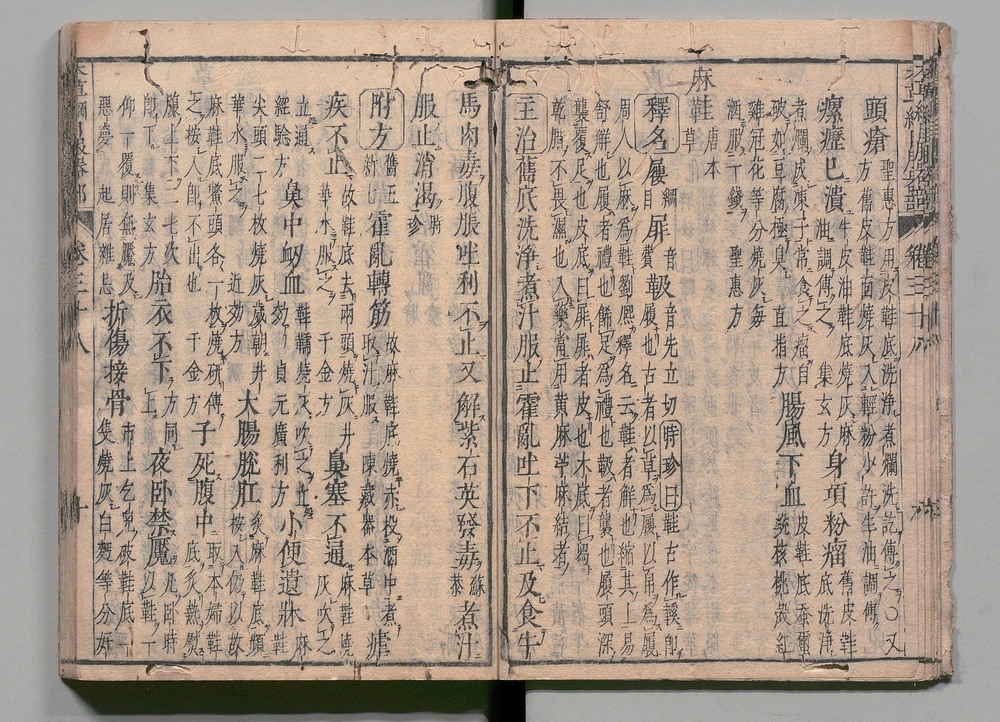 頭瘡聖惠方用皮鞋底洗淨煮爛洗訖傅之〇又
方舊皮鞋面燒灰入輕粉少許生油調傅
瘰癧已潰牛皮油鞋底燒灰麻油調傅之集玄方身項粉瘤舊皮鞋底洗淨
煮爛成凍子常食之瘤自
破如豆腐極臭直指方腸風下血皮鞋底蠶繭
蛻核桃殼紅
雞冠花等分燒灰每
酒服一錢聖惠方
麻鞋唐本草
釋名屨綱目屝音費靸音先立切時珍曰鞋古作鞵即
履也古者以草爲屨以帛爲履
周人以麻爲鞋劉熙釋名云鞋者解也縮其上易
舒解也履者禮也飾足爲禮也靸者襲也履頭深
襲覆足也皮底曰屝屝者皮也木底曰舄
乾腊不畏濕也入藥當用黄麻苧麻結者
主治舊底洗淨煮汁服止霍亂吐下不止及食牛
馬肉毒腹脹吐利不止又解紫石英發毒蘇恭煮汁
服止消渴時珍
附方舊五新七霍亂轉筋故麻鞋底燒赤投酒中煮
取汁服陳藏器本草瘧
疾不止故鞋底去兩頭燒灰井
華水服之千金方鼻塞不通麻鞋燒
灰吹之
立通經驗方鼻中衄血鞋𩌏燒灰吹之立
效貞元廣利方小便遺牀麻鞋
尖頭二七枚燒灰歲朝井
華水服之近效方大腸脫肛炙麻鞋底頻
按入仍以故
麻鞋底鱉頭各一枚燒研傅
之按入即不出也千金方子死腹中取本婦鞋
底炙熱熨
腹上下二七次
即下集玄方胎衣不下方同上夜卧禁魘凡卧時
以鞋一
仰一覆則無魘及
惡夢起居雜忌折傷接骨市上乞兒破鞋底一
隻燒灰白麵等分好